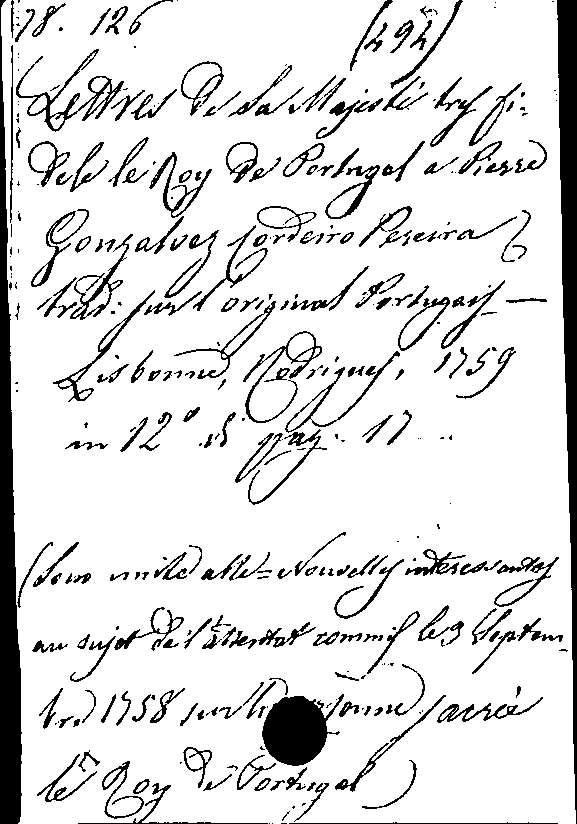 78. 126 (494)
Lettres de Sa Majesté trȩs fi-
dele le Roy de Portugal a Pierre
Gonzalvez Cordeiro Pereira
trad: sur l'original Portugais —
Lisbonne, Rodrigues, 1759
in 12º di pag. 17
(Sono unite alle = Nouvelles interessantes
au sujet de l'attentat commis le 3 Septem-
bre 1758 sur la personne sacrée
le Roy de Portugal)